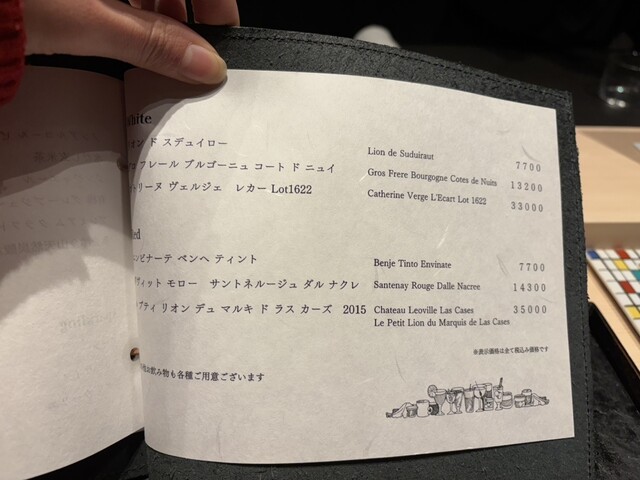 White
オン ド スデュイロー Lion de Suduiraut 7700
フレール ブルゴーニュ コート ド ニュイ Gros Frere Bourgogne Cotes de Nuits 13200
トリーヌ ヴェルジェ レカー Lot1622 Catherine Verge L'Ecart Lot 1622 33000
Red
ンビナーテ ペンヘ ティント Benje Tinto Envinate 7700
ヴィット モロー サントネルージュ ダル ナクレ Santenay Rouge Dalle Nacree 14300
プティ リオン デュ マルキ ド ラス カーズ 2015 Chateau Leoville Las Cases 35000
Le Petit Lion du Marquis de Las Cases
※表示価格は全て税込み価格です
お飲み物も各種ご用意ございます